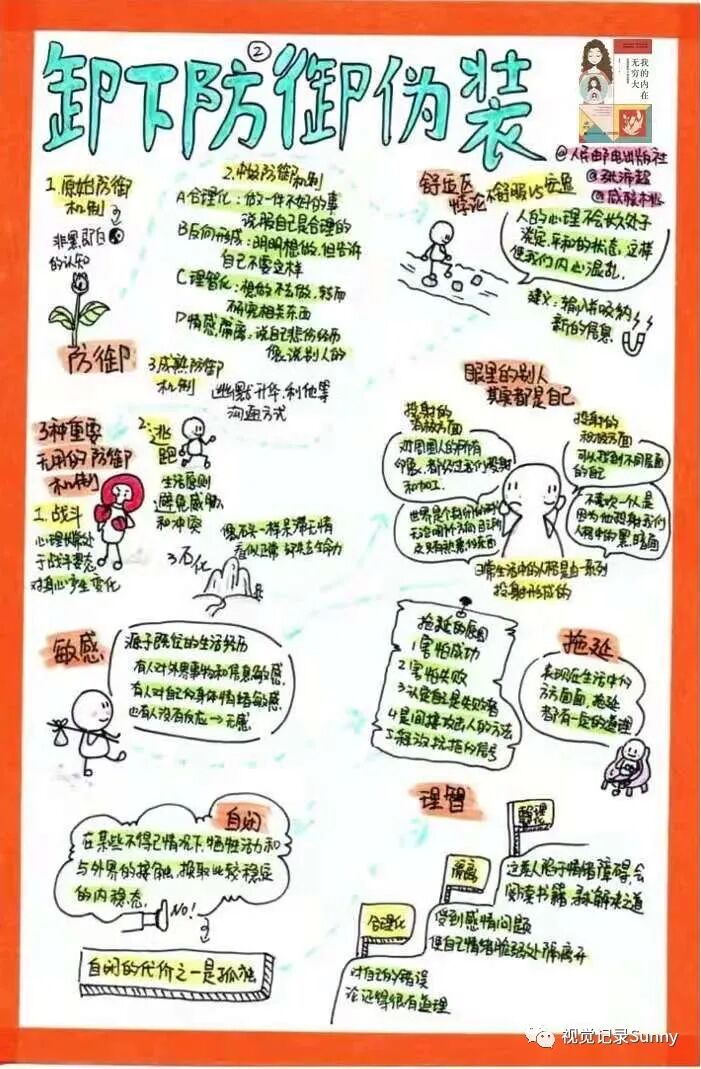 ②
卸下防御伪装
我的内在
无穷大
@人民邮电出版社
@张沛超
1.原始防御
机制
非黑即白
的认知
防御
2.中级防御机制
A合理化:做一件不好的事
说服自己是合理的
B反向形成:明明想的,但告诉
自己不要这样
C理智化:想的不去做,转而
研究相关东西
D情感隔离:说自己悲伤经历
像说别人的
3成熟防御
机制
幽默升华,利他等
沟通方式
舒适区
悖论
舒服VS安逸
人的心理不会长久处于
淡定,平和的状态,这样
使我们内心混乱.
建议:输入并吸纳
新的信息
3种重要
无用的防御
机制
1.战斗
心理频处
于战斗姿态
对身心产生变化
2.逃
跑
生活原则
避免威胁
和冲突
3石化
像石头一样呆滞无情
看似正常却失去生命力
眼里的别人
其实都是自己
投射的
消极方面
对周围人的所有
印象,都经过我们投射
和加工.
投射的
积极方面
可以找到不同层面
的自己
不喜欢一个人是
因为他投射我们
人格中的黑暗面
日常生活中的人格是由一系列
投射形成的
敏感
源于既往的生活经历
有人对外界事物和信息敏感.
有人对自己的身体情绪敏感
也有人没有反应→无感
拖延的原因
1害怕成功
2.害怕失败
3.认定自己是失败者
4是间接攻击人的方法
5.释放抗拒的信号
拖延
表现在生活中的
方方面面,拖延
都有一定的道理
自闭
在某些不得已情况下,牺牲活力和
与外界的接触,换取比较稳定
的内稳态.
NO!
自闭的代价之一是孤独
理智
理智化
这类人陷于情绪障碍,会
阅读书籍,寻求解决之道
隔离
受到感情问题
使自己情绪脆弱处隔离开
合理化
对自己的错误
论述得很有道理
视觉记录Sunny